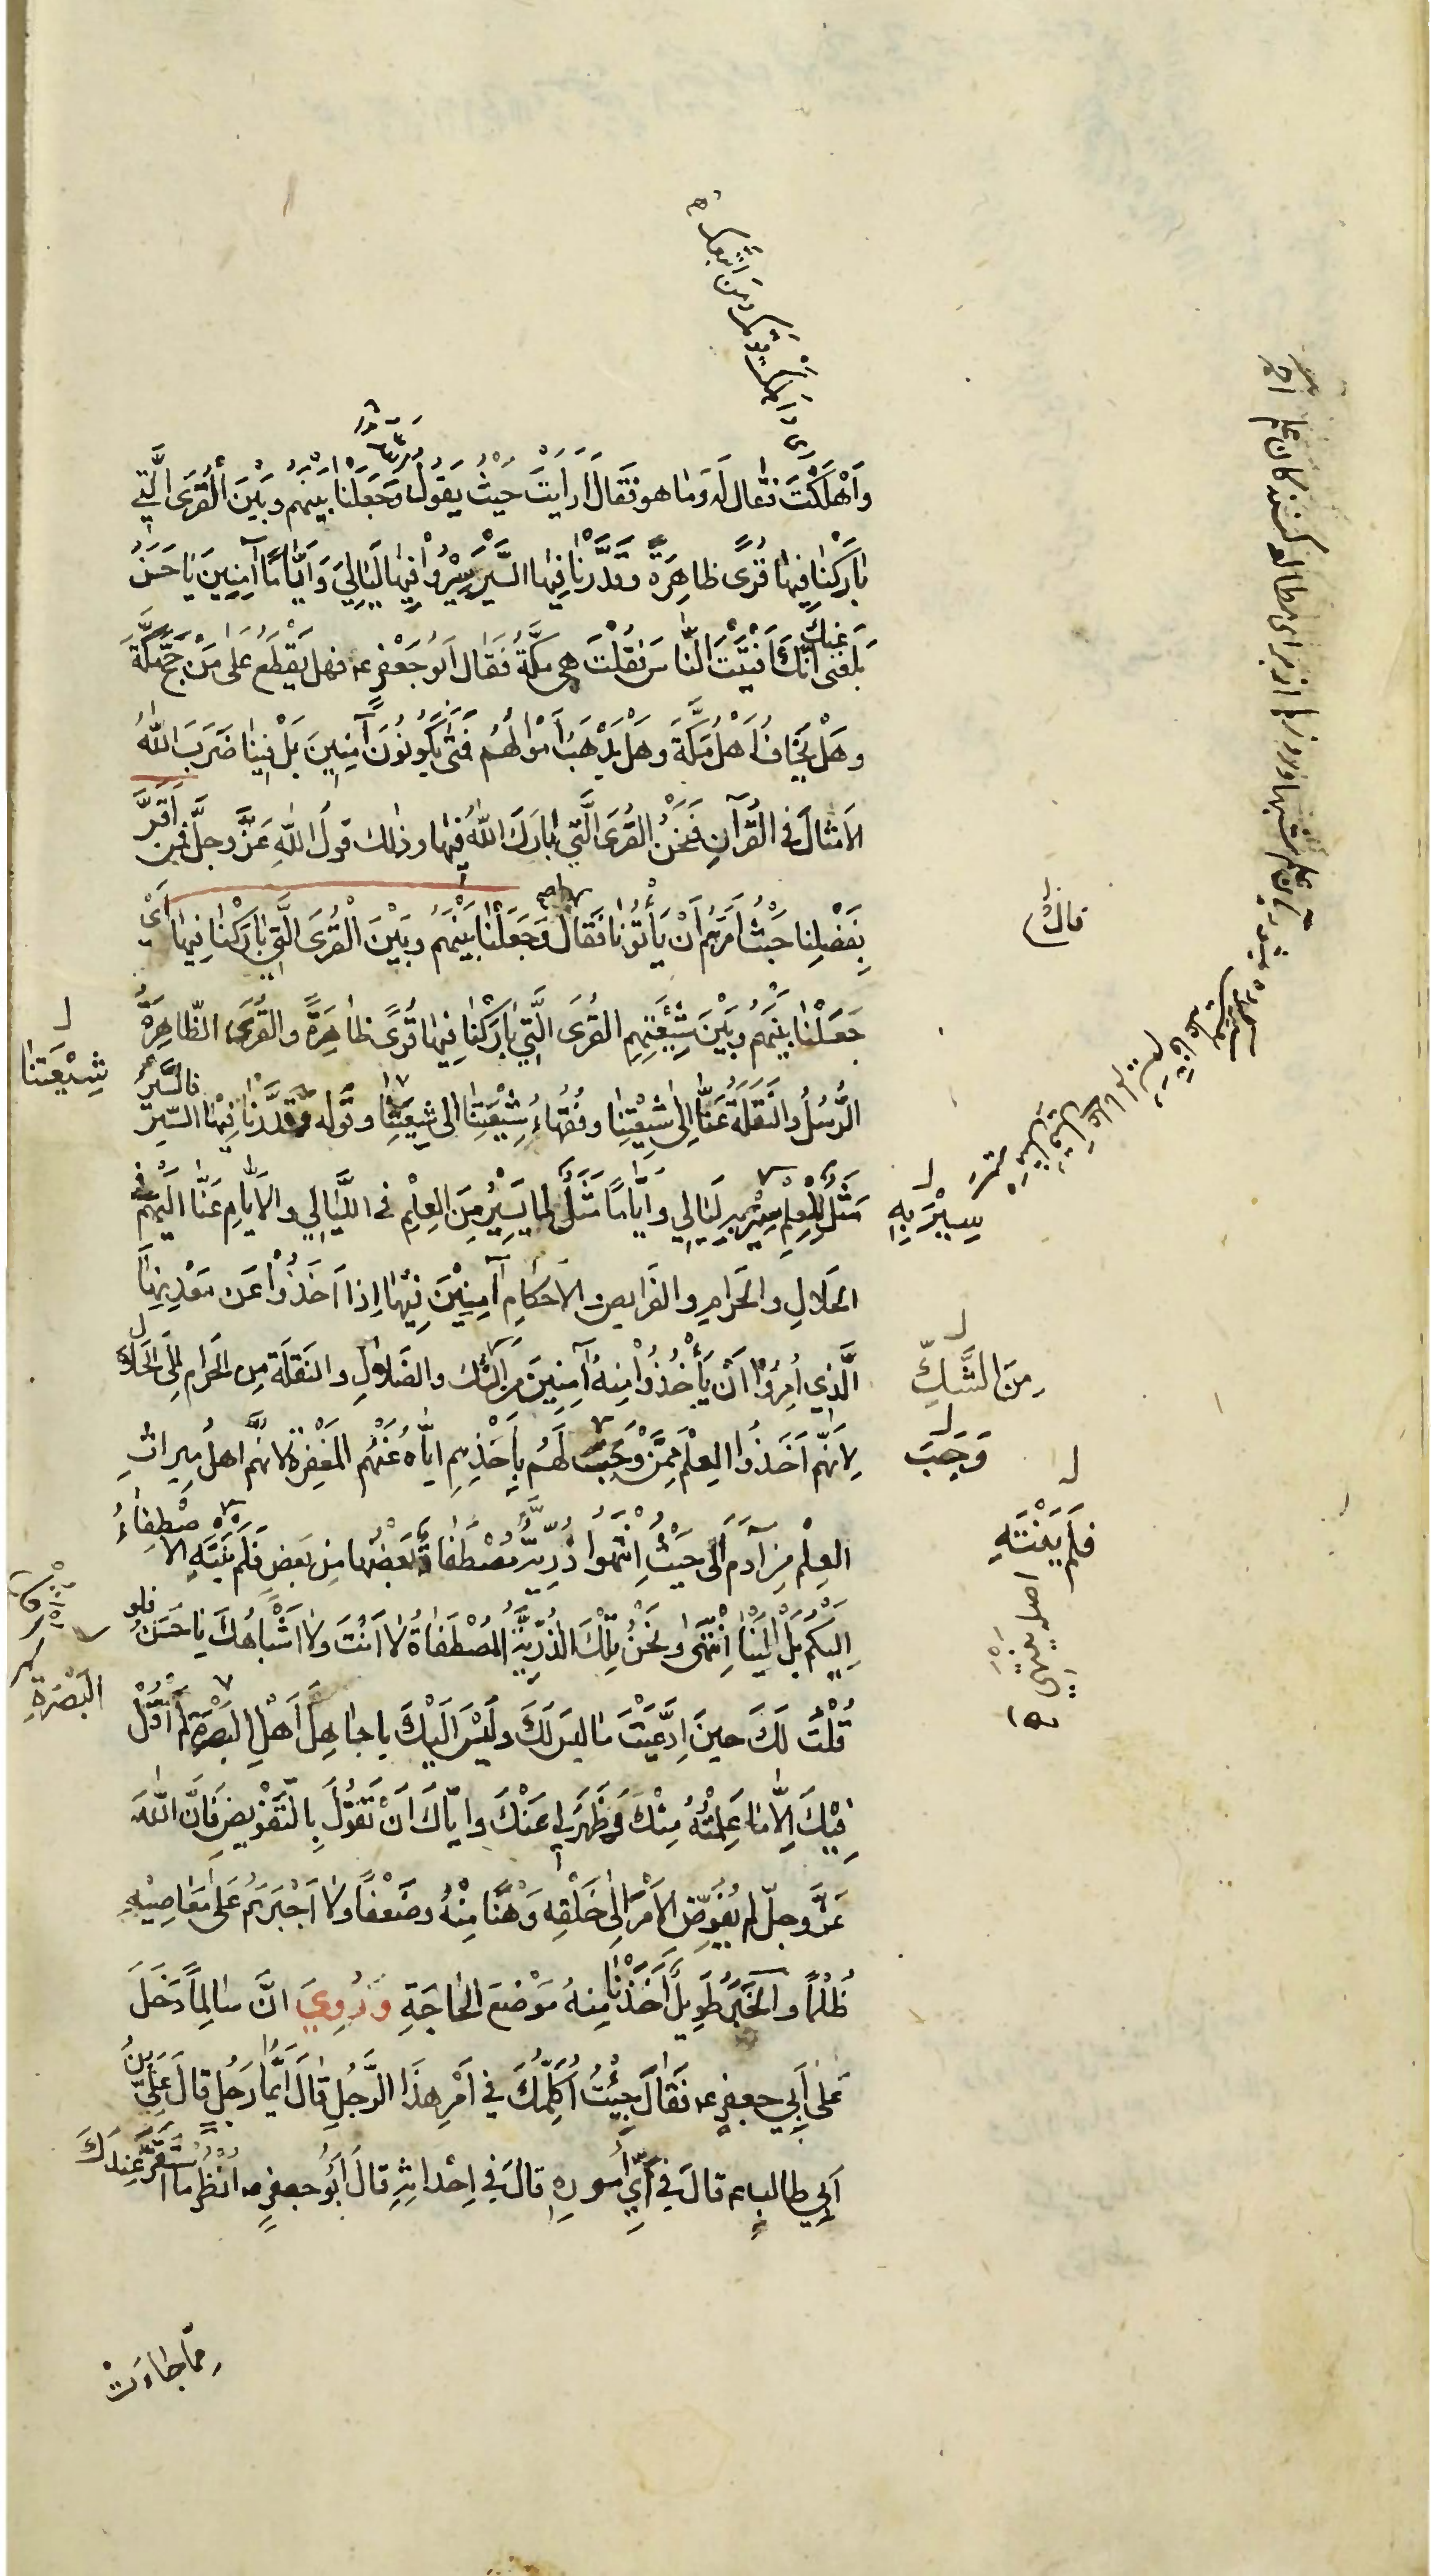 وَاَهْلَكْتَ فقال لَه وَما هو فَقَالَ اَرَايْتَ حَيْثُ يَقُولُ وَجَعَلْنا بَيْنَهُم وبَيْنَ الْقُرَى الَّتي
بارَكْنا فيها قُرًى ظاهِرَةً وقَدَّرْنا فيها السَّيْرَ سِيْرُوْا فيها لَيَالِيَ وَاَيّامًا آمِنِينَ يا حَسَنُ
بَلَغَنى عَنْكَ اَنَّكَ اَفْتَيْتَ النّاسَ فقُلْتَ هي مَكَّةُ فَقَال اَبُو جَعْفَرٍ عه فهل يُقْطَعُ عَلى مَنْ حَجَّ مَكَّةَ
وهَلْ يَخافُ اَهْلُ مَكَّةَ وهَلْ يَذْهَبُ اَمْوالُهُم فَمَتى يَكُونُونَ آمِنِينَ بَلْ فِينا ضَرَبَ اللّٰهُ
الاَمْثالَ في القُرْآنِ فَنَحْنُ القُرَى الَّتي بارَكَ اللّٰهُ فيها وذلك قولُ اللّٰهِ عَزَّ وجلَّ فمن اَقَرَّ
بِفَضْلِنا حَيْثُ اَمَرَهُم اَنْ يَأْتُونا فَقَال وَجَعَلْنا بَيْنَهُم وبَيْنَ الْقُرَى الَّتي بارَكْنا فيها اَيْ
قال
جَعَلْنا بَيْنَهُم وبَيْنَ شِيْعَتِهِم القُرَى الَّتي بارَكْنا فيها قُرًى ظاهِرَةً والقُرَى الظّاهِرَةُ
الرُّسُلُ والنَّقَلَةُ عَنّا اِلى شِيْعَتِنا وفُقَهاءُ شِيْعَتِنا الى شِيعَتِنا وقوله وقَدَّرْنا فيها السَّيرَ فالسَّيْرُ
شِيْعَتنا
مَثَلٌ لِلْعِلْمِ سِيْرَ بِهِ لَيَالِي وَاَيّامًا مَثَلٌ لِما يَسِيْرُ مِنَ العِلْمِ في اللَّيالِي والاَيّامِ عَنّا اِلَيْهِم في
سِيْرَ بِهِ
الحَلالِ والحَرامِ والفَرايض والاَحكامِ آمِنِيْنَ فيها اِذا اَخَذُوْا عَن مَعْدِنِها
الَّذي اُمِرُوْا اَنْ يَأْخُذُوْا مِنهُ آمِنِينَ مِنَ الشك والضَلالِ والنَقلَة مِن الحَرام اِلى الحَلال
مِنَ الشَّكِّ
لِاَنَّهم اَخَذُوا العِلْمَ مِمَّنْ وَجَبَ لَهُم بِاَخْذِهِم اياه عَنْهُم المَغْفِرَة لاَنَّهُم اهلُ مِيراثِ
وَجَبَ
العِلْمِ مِن آدَمَ الى حَيْثُ انْتَهَوا ذُرّيَّةٌ مُصْطَفاةٌ بَعْضُها مِن بَعضٍ فَلَم يَنْتَهِ الاصْطِفاءُ
فَلَم يَنْتَهِ
اصله ينتهي
اِلَيكُم بَلْ اِلَيْنا انْتَهى ونَحْنُ تِلْكَ الذُرّيَّةُ المُصْطَفاةُ لا اَنْتَ ولا اَشْباهُكَ يا حَسَنُ فلو
قُلْتُ لَكَ حينَ اِدَّعَيْتَ ما ليسَ لَكَ ولَيْسَ اِلَيْكَ يا جاهِلَ اَهْلِ البَصْرَةِ لَم اَقُلْ
البَصْرَةِ
فِيْكَ اِلّا ما عَلِمْتُهُ مِنْكَ وظَهَرَ لي عَنْكَ وايّاكَ اَنْ تَقُوْلَ بِالتَّفْوِيضِ فَاِنَّ اللّٰهَ
عَزَّ وجلّ لم يُفَوِّضِ الاَمْرَ اِلى خَلْقِه وَهْنًا مِنْهُ وضَعْفًا ولا اَجْبَرَهُم عَلى مَعَاصِيْهِ
ظُلْمًا والخَبَرُ طَوِيلٌ اَخَذْنا مِنهُ مَوْضعَ الحاجَةِ وَرُوِيَ انَّ سالِمًا دَخَلَ
عَلى اَبِي جعفرٍ عه فَقالَ جِئْتُ اُكَلِّمُكَ في اَمْرِ هذَا الرَّجُلِ قالَ اَيُّما رَجُلٍ قالَ عَلِيّ بنُ
اَبي طالبٍ عه قالَ في اَيِّ اُمُورِهِ قالَ في اِحْداثِهِ قالَ اَبُو جعفرٍ عه انْظُر ما اسْتَقَرَّ عِنْدَكَ
مما جاءَتْ